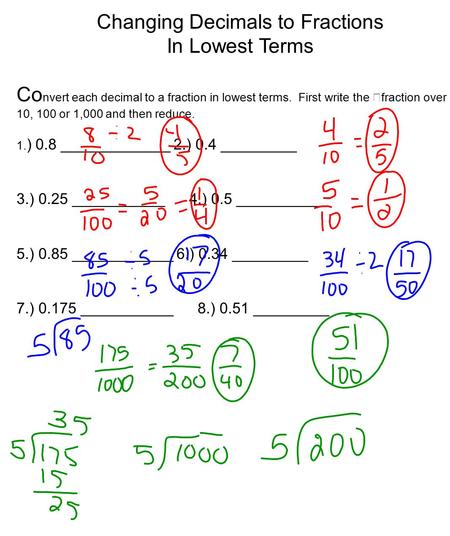 Changing Decimals to Fractions
In Lowest Terms
Convert each decimal to a fraction in lowest terms. First write the fraction over
10, 100 or 1,000 and then reduce.
1.) 0.8 8/10 ÷2 4/5 2.) 0.4 4/10 = 2/5
3.) 0.25 25/100 = 5/20 = 1/4 4.) 0.5 5/10 = 1/2
5.) 0.85 85/100 ÷5 ÷5 17/20 6.) 0.34 34/100 ÷2 17/50
7.) 0.175 8.) 0.51
5)85 175/1000 = 35/200 7/40 51/100
35
5)175 5)1000 5)200
15
25